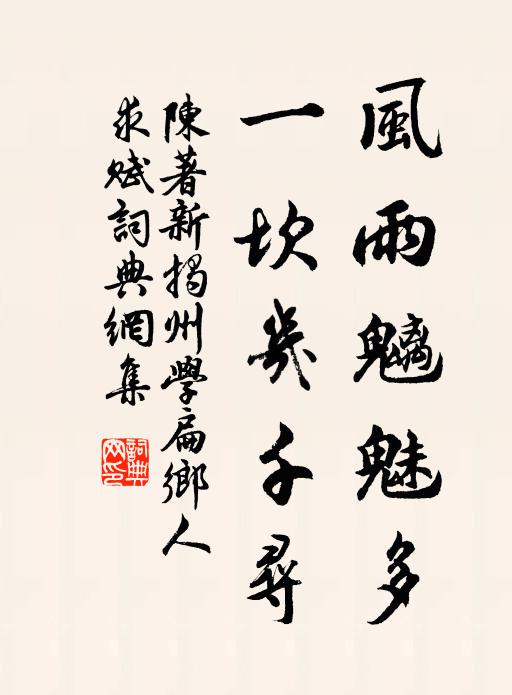 風雨魑魅多
一坎幾千尋
陳著新揭州學扁鄉人
求賦詞典網集
詞典網印